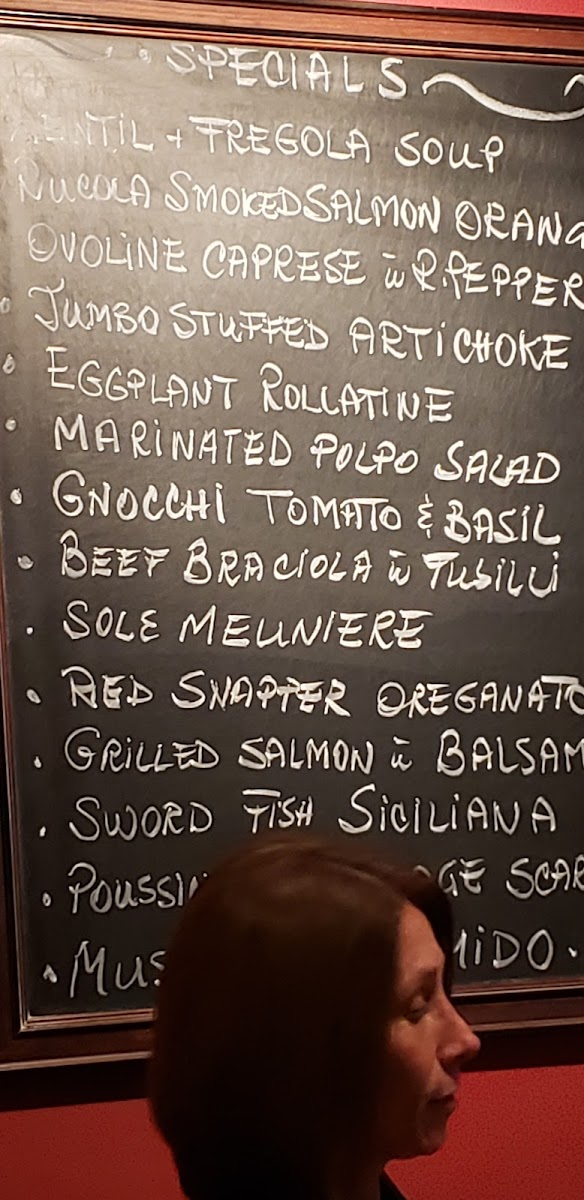 SPECIALS
LENTIL + FREGOLA SOUP
RUCOLA SMOKED SALMON ORANG
OVOLINE CAPRESE w R.PEPPER
JUMBO STUFFED ARTICHOKE
EGGPLANT ROLLATINE
MARINATED POLPO SALAD
GNOCCHI TOMATO & BASIL
BEEF BRACIOLA w FUSILLI
SOLE MEUNIERE
RED SNAPPER OREGANATO
GRILLED SALMON w BALSAM
SWORD FISH SICILIANA
POUSSIN SCAR
MUS MIDO